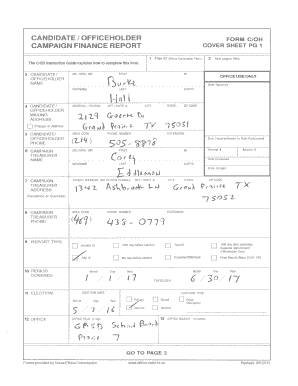 CANDIDATE / OFFICEHOLDER
CAMPAIGN FINANCE REPORT
FORM C/OH
COVER SHEET PG 1
The C/OH Instruction Guide explains how to complete this form.
1 Filer ID
2 Total pages filed:
3 CANDIDATE / OFFICEHOLDER NAME
MS / MRS / MR FIRST MI
Burke
NICKNAME LAST SUFFIX
Hall
OFFICE USE ONLY
Date Received
4 CANDIDATE / OFFICEHOLDER MAILING ADDRESS
Change of Address
ADDRESS / PO BOX; APT / SUITE #; CITY; STATE; ZIP CODE
2129
Grand Prairie TX 75051
5 CANDIDATE / OFFICEHOLDER PHONE
AREA CODE PHONE NUMBER EXTENSION
(214) 505-8878
Date Hand-delivered or Date Postmarked
6 CAMPAIGN TREASURER NAME
MS / MRS / MR FIRST MI
Corey
NICKNAME LAST SUFFIX
Eddleman
Receipt # Amount $
Date Processed
Date Imaged
7 CAMPAIGN TREASURER ADDRESS
(Residence or Business)
CITY; STATE; ZIP CODE
1342 Ashbrook Ln Grand Prairie TX
75052
8 CAMPAIGN TREASURER PHONE
AREA CODE PHONE NUMBER EXTENSION
(469) 438-0779
9 REPORT TYPE
January 15
30th day before election
Runoff
15th day after campaign treasurer appointment
(Officeholder Only)
July 15
8th day before election
Final Report (Attach C/OH - FR)
10 PERIOD COVERED
Month Day Year
1 / 1 / 17
THROUGH
Month Day Year
6 / 30 / 17
11 ELECTION
ELECTION DATE
Month Day Year
ELECTION TYPE
Primary
Runoff
Other Description
General
Special
12 OFFICE
OFFICE HELD (if any)
GPISD School Board
Place 7
13 OFFICE SOUGHT (if known)
GO TO PAGE 2
Forms provided by Texas Ethics Commission
www.ethics.state.tx.us